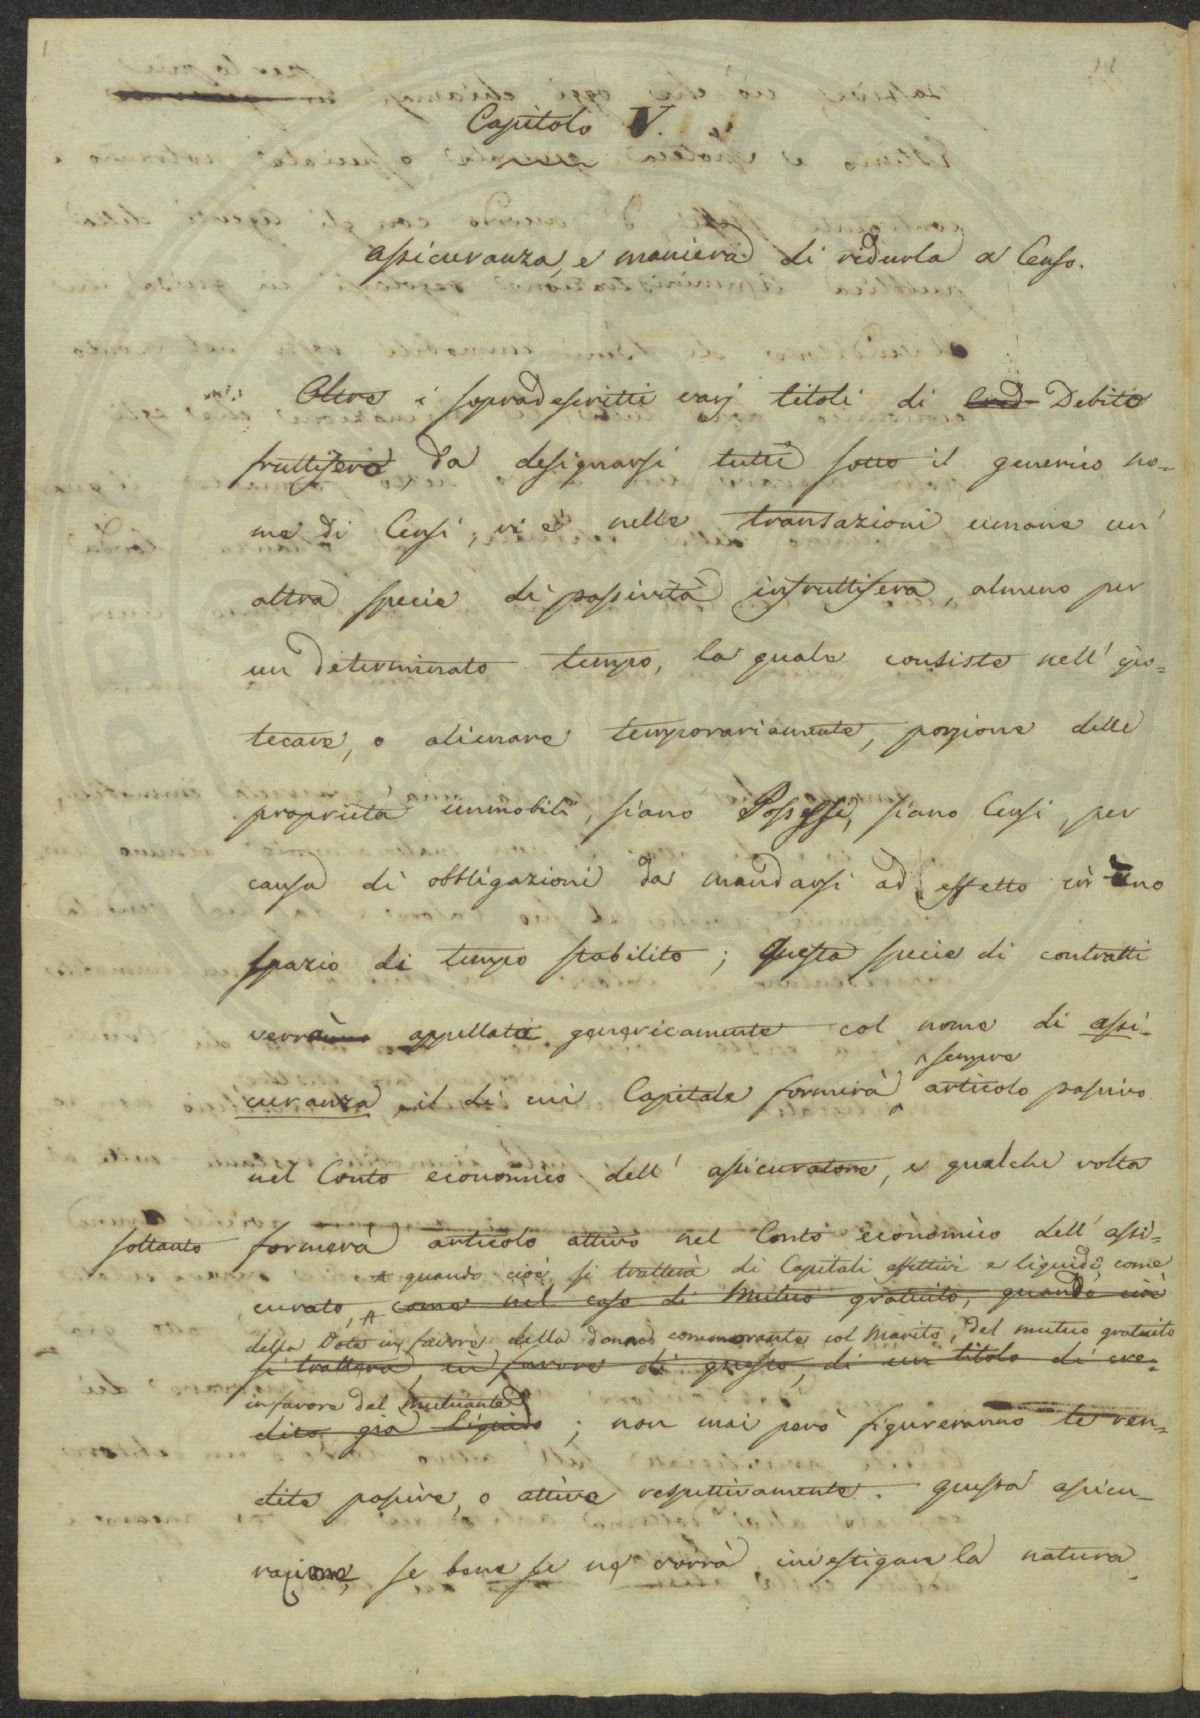 Capitolo V.
assicuranza, e maniera di ridurla a Censo.
Oltre i sopradescritti varj titoli di Cred- Debito
fruttifero, da designarsi tutti sotto il generico no=
me di Censi, vi è nelle transazioni umane un'
altra specie di passività infruttifera, almeno per
un determinato tempo, la quale consiste nell' ipo=
tecare, o alienare temporariamente, porzione delle
proprietà immobili, siano Possessi, siano Censi, per
causa di obbligazioni da mandarsi ad effetto in uno
spazio di tempo stabilito; questa specie di contratti
verrà appellata genericamente col nome di assi-
sempre
curanza, il di cui Capitale formerà articolo passivo
nel Conto economico dell' assicuratore, e qualche volta
soltanto formerà articolo attivo nel Conto economico dell' assi-
quando cioè si tratterà di Capitali effettivi e liquidi, come
curato, come nel caso di Mutuo gratuito, quando cioè
della Dote in favore della donna commorante col Marito, del mutuo gratuito
si tratterà, in favore di questo, di un titolo di cre-
in favore del Mutuante
dito già liquido; non mai però figureranno le ren-
dite passive, o attive respettivamente. questa assicu-
razione, se bene se ne vorrà investigare la natura